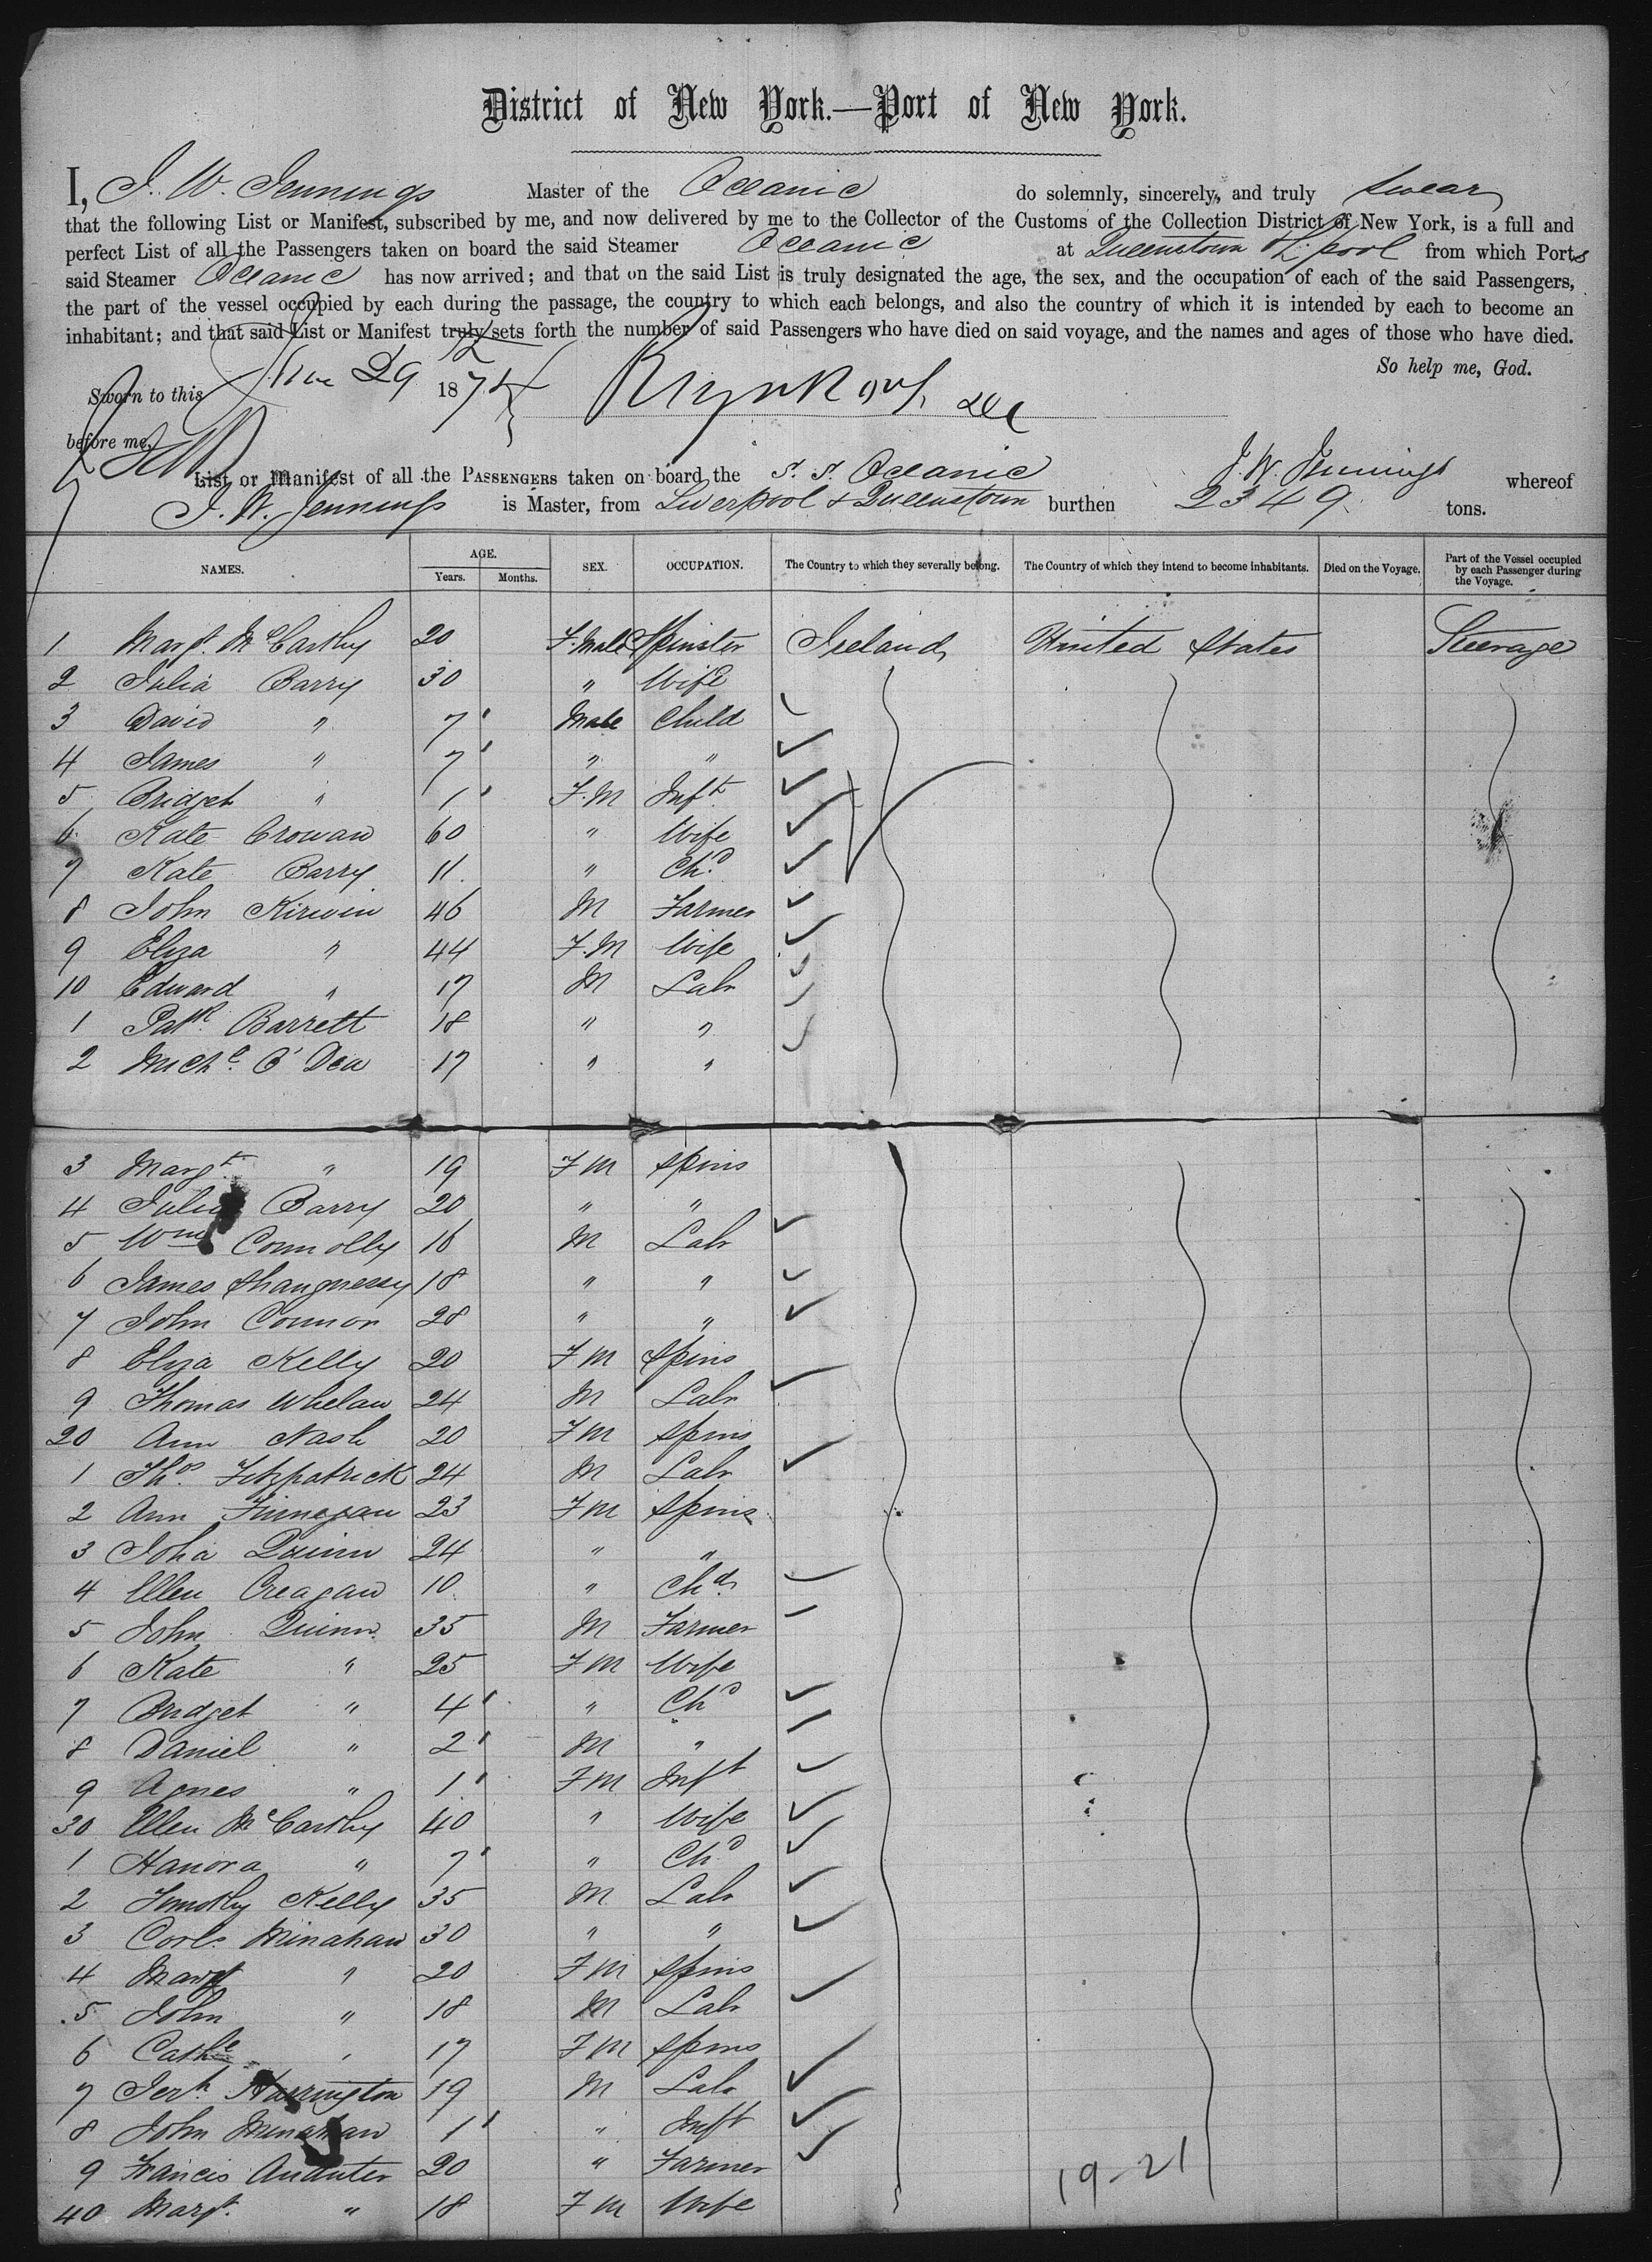 District of New York.—Port of New York.
I, J. W. Jennings Master of the Oceanic do solemnly, sincerely, and truly swear
that the following List or Manifest, subscribed by me, and now delivered by me to the Collector of the Customs of the Collection District of New York, is a full and
perfect List of all the Passengers taken on board the said Steamer Oceanic at Queenstown & L'pool from which Ports
said Steamer Oceanic has now arrived; and that on the said List is truly designated the age, the sex, and the occupation of each of the said Passengers,
the part of the vessel occupied by each during the passage, the country to which each belongs, and also the country of which it is intended by each to become an
inhabitant; and that said List or Manifest truly sets forth the number of said Passengers who have died on said voyage, and the names and ages of those who have died.
So help me, God.
Sworn to this 29 187
before me,
List or Manifest of all the PASSENGERS taken on board the S. S. Oceanic J. W. Jennings whereof
J. W. Jennings is Master, from Liverpool & Queenstown burthen 2349 tons.
NAMES. AGE. Years. Months. SEX. OCCUPATION. The Country to which they severally belong. The Country of which they intend to become inhabitants. Died on the Voyage. Part of the Vessel occupied by each Passenger during the Voyage.
1 Margt. McCarthy 20 F.Male Spinster Ireland United States Steerage
2 Julia Barry 30 " Wife
3 David " 7 Male Child
4 James " 7 " "
5 Bridget " 1 F.M Inft
6 Kate Crowan 60 " Wife
7 Kate Barry 11 " Chd
8 John Kirwin 46 M Farmer
9 Eliza " 44 F.M Wife
10 Edward " 17 M Labr
1 Patk Barrett 18 " "
2 Michl O'Dea 17 " "
3 Margt " 19 F M Spins
4 Julia Barry 20 " "
5 Wm Connolly 16 M Labr
6 James Shaugnessy 18 " "
7 John Connor 28 " "
8 Eliza Kelly 20 F M Spins
9 Thomas Whelan 24 M Labr
20 Ann Nash 20 F M Spins
1 Thos Fitzpatrick 24 M Labr
2 Ann Finnegan 23 F M Spins
3 Joha Quinn 24 " "
4 Ellen Creagan 10 " Chd
5 John Quinn 35 M Farmer
6 Kate " 25 F M Wife
7 Bridget " 4 " Chd
8 Daniel " 2 M "
9 Agnes " 1 F M Inft
30 Ellen McCarthy 40 " Wife
1 Hanora " 7 " Chd
2 Timothy Kelly 35 M Labr
3 Corls Minahan 30 " "
4 Margt " 20 F M Spins
5 John " 18 M Labr
6 Cathe " 17 F M Spins
7 Jerh Harrington 19 M Labr
8 John Minahan 1 " Inft
9 Francis 20 " Farmer
40 Margt. " 18 F M Wife
19-21